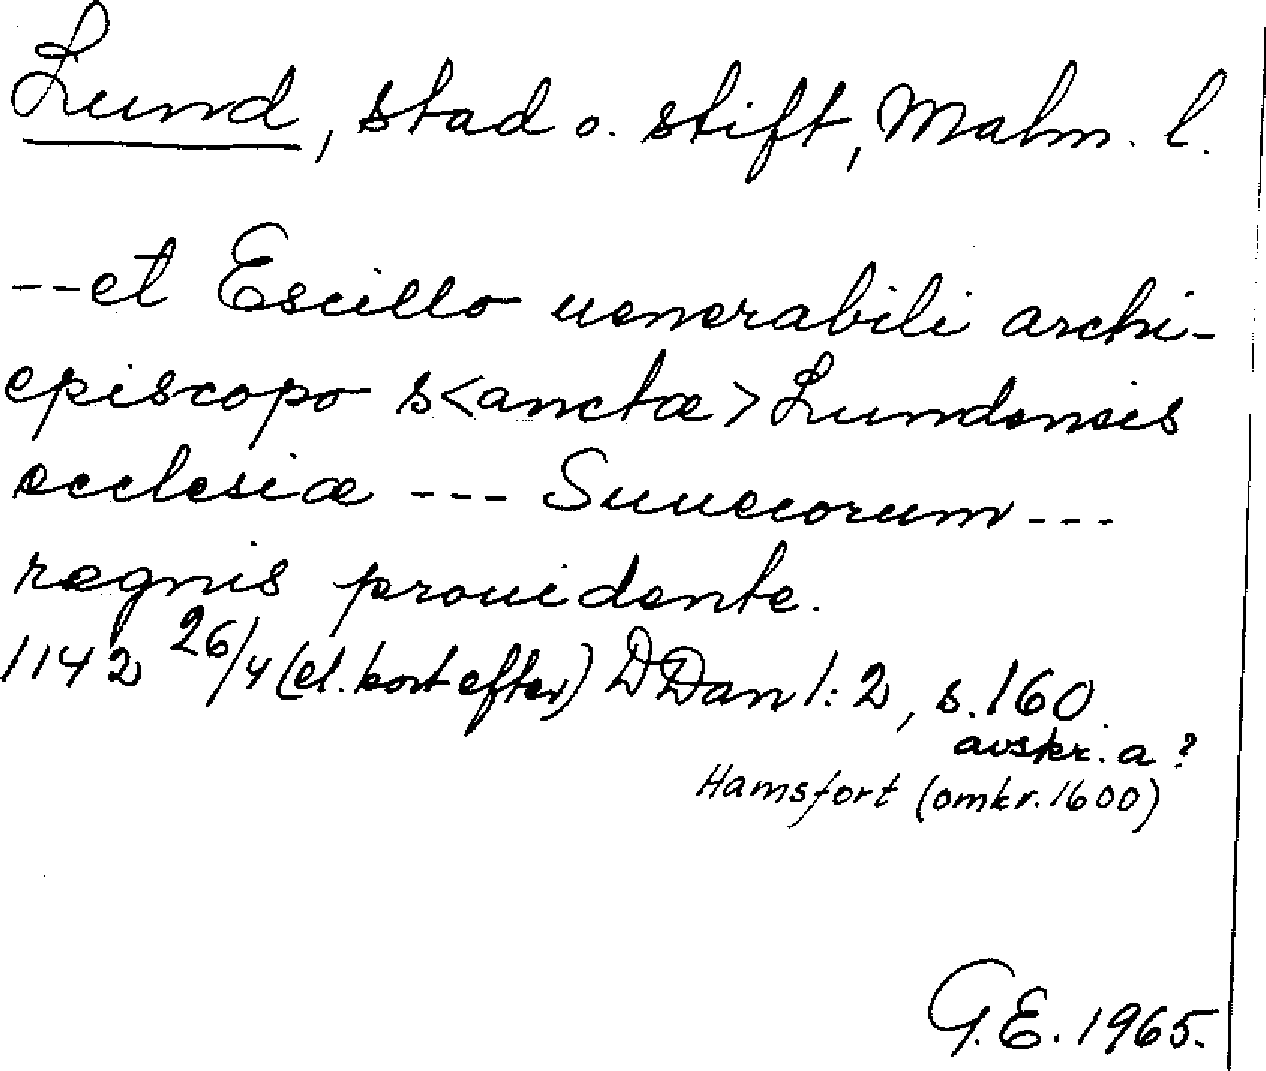 Lund, stad o. stift, Malm. l.
--et Escillo uenerabili archi-
episcopo s<anctæ> Lundensis
ecclesiæ --- Sueuorum ---
regnis prouidente.
1142 26/4 (el. kort efter) DDan 1:2, s. 160.
avskr. a?
Hamsfort (omkr. 1600)
G.E. 1965.